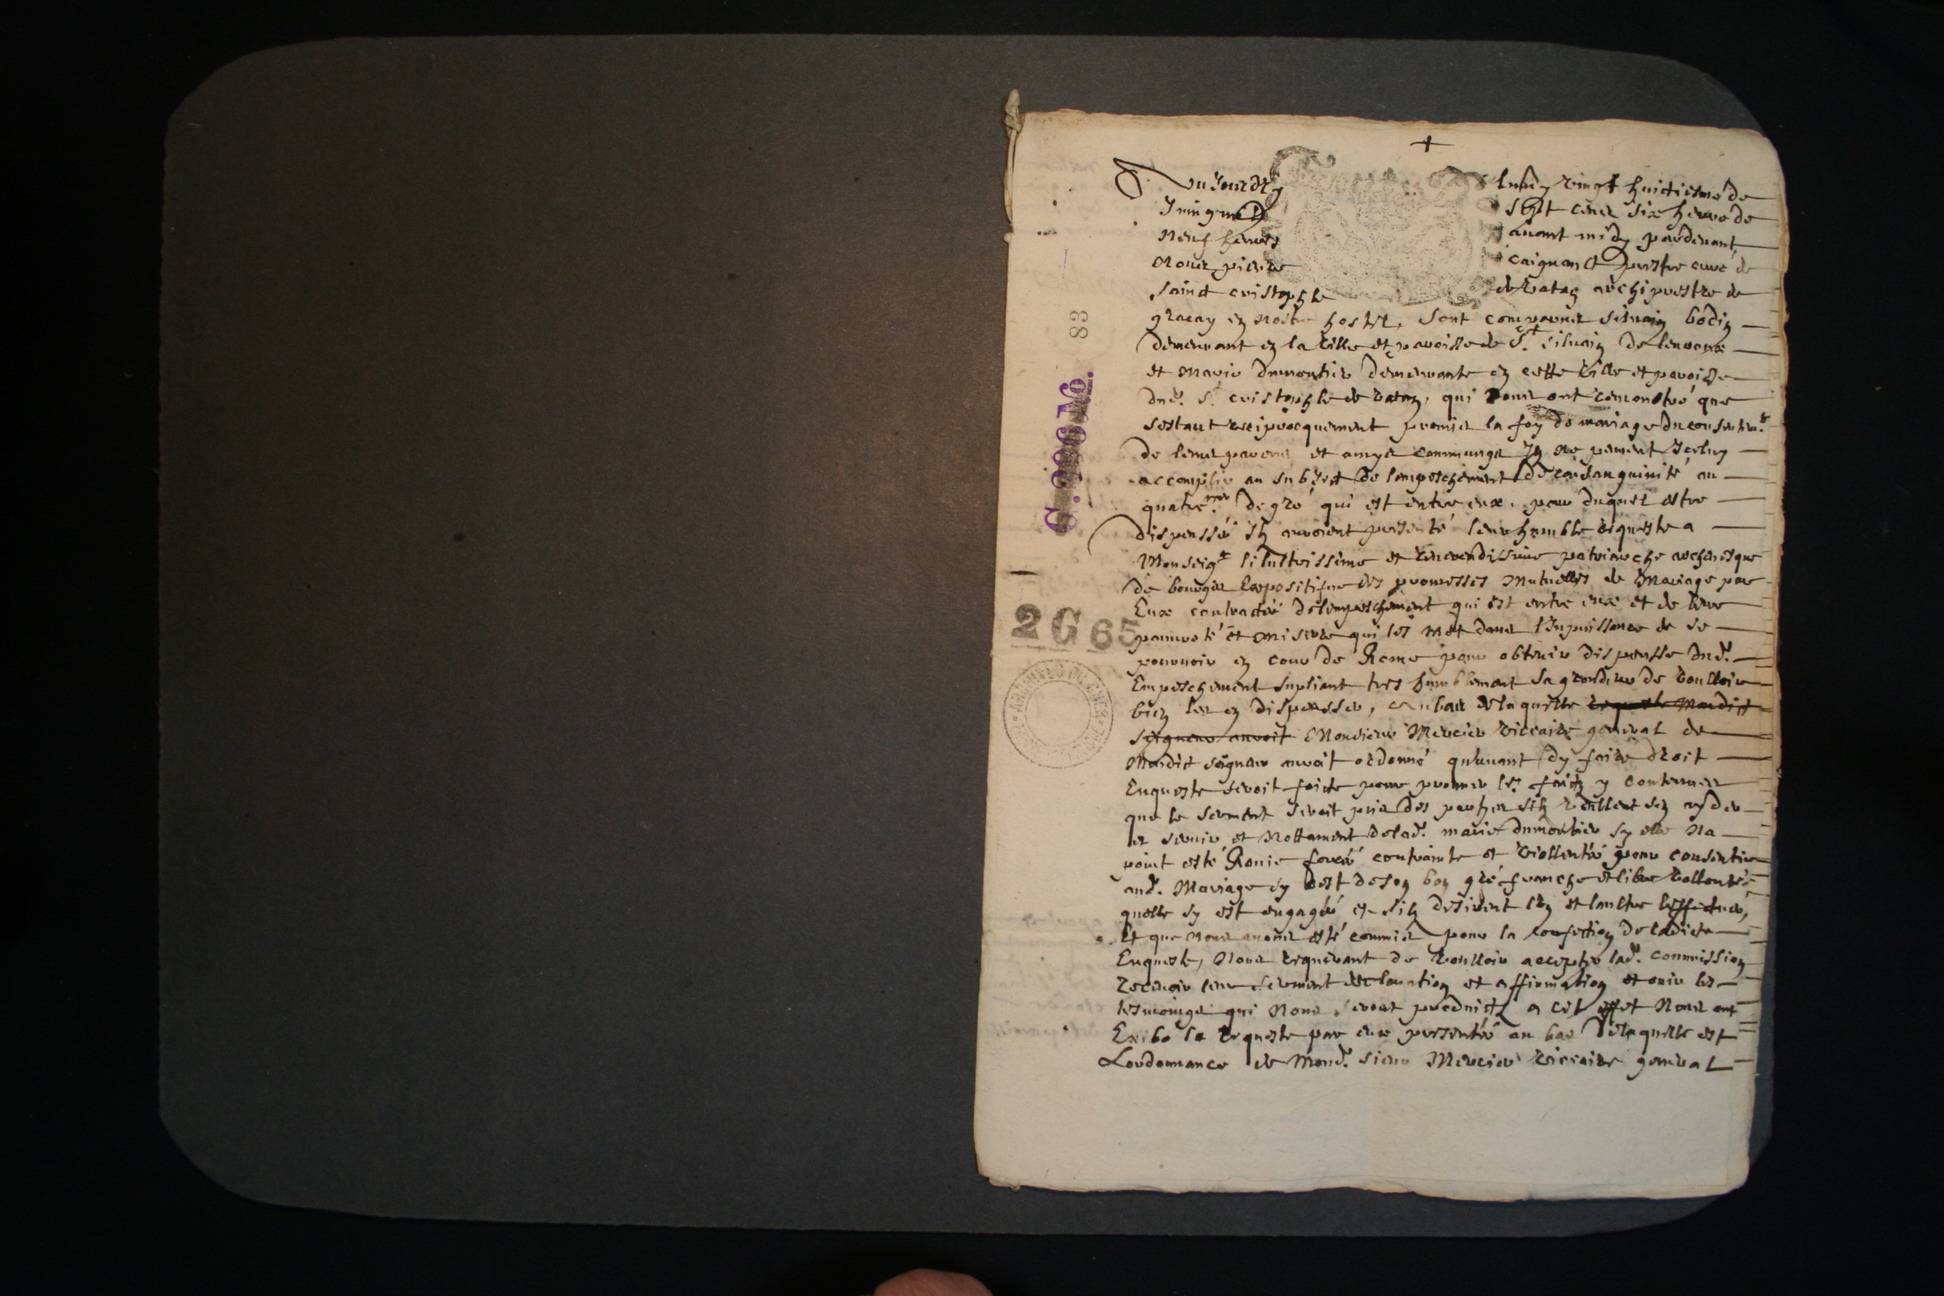 +
Aujourdhuy lundy vingt huictiesme de
Juing mil sept cent six heure de
neuf heures avant midy pardevant
nous pierre caignault prestre curé de
sainct cristophle de vatan archiprestre de
gracay en nostre hostel, sont comparus silvain bodin
demeurant en la ville et paroisse de St silvain de levroux
et marie dumontier demeurante en cette ville et paroisse
dud. St cristophle de vatan, qui nous ont remonstré que
sestant reciprocquement promis la foy de mariage du consentemt
de leurs parens et amys communs Ilz ne peuvent Iceluy
accomplir au subject de lempeschement de consanguinité au
quatrme degré qui est entre eux, pour duquel estre
dispenssés ilz auroient presenté leur humble requeste a
Monseigr lilustrissime et reverendissime patriarche archevesque
de bourges Expositifve des promesses mutuelles de mariage par
Eux contractées de lempeschement qui est entre eux et de leur
pauvreté et misere qui les met dans l'Inpuissance de se
pourvoir en cour de Rome pour obtenir dispensse dud.
Empeschement supliant tres humblement sa grandeur de voulloir
bien les en dispensser, au bas de laquelle requeste mondict
seigneur auroit Monsieur Mercier viccaire general de
Mondict seigneur auroit ordonné quavant dy faire droit
Enqueste seroit faicte pour prouver les faictz y contenus
que le serment seroit pris des parties silz veullent sen ayder
et servir et nottament de lad. marie dumontier sy elle na
point esté Ravie forcée contrainte et viollentée pour consentir
aud. Mariage sy cest de son bon gré franche et libre vollonté
quelle sy est engagée et silz desirent lun et lautre leffectuer,
Et que nous avons esté commis pour la confection de ladicte
Enqueste, nous requerant de voulloir accepter lad. commission
recevoir leur serment declaration et affirmation et ouir les
tesmoings qui nous seront produictz a cet effet nous ont
Exibé la requeste par eux presentée au bas de laquelle est
Lordonnance de mond. sieur Mercier viccaire general
83
2 G 65